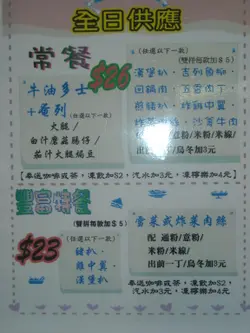 全日供應
常餐
$26
(任選以下一款)
牛油多士
+奄列
(任選以下一款)
火腿/
白汁蘑菇腸仔/
茄汁火腿焗豆
(雙拼每款加$5)
漢堡扒、吉列魚柳
回鍋肉、五香肉丁、
煎豬扒、炸雞中翼
配通粉/意粉/
米粉/米線/
出前一丁/烏冬加3元
【奉送咖啡或茶，凍飲加$2，汽水加3元，凍檸樂加4元】
豐富特餐
(雙拼每款加$5)
$23
(任選以下一款)
豬扒、
雞中翼、
漢堡扒
雪菜或炸菜肉絲
配 通粉/意粉/
米粉/米線/
出前一丁/烏冬加3元
【奉送咖啡或茶，凍飲加$2，
汽水加3元，凍檸樂加4元】